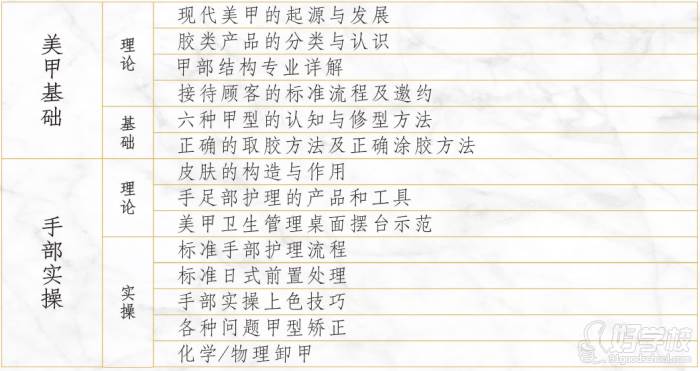 美甲基础
理论
现代美甲的起源与发展
胶类产品的分类与认识
甲部结构专业详解
接待顾客的标准流程及邀约
基础
六种甲型的认知与修型方法
正确的取胶方法及正确涂胶方法
手部实操
理论
皮肤的构造与作用
手足部护理的产品和工具
美甲卫生管理桌面摆台示范
实操
标准手部护理流程
标准日式前置处理
手部实操上色技巧
各种问题甲型矫正
化学/物理卸甲
好学校
91goodschool.com